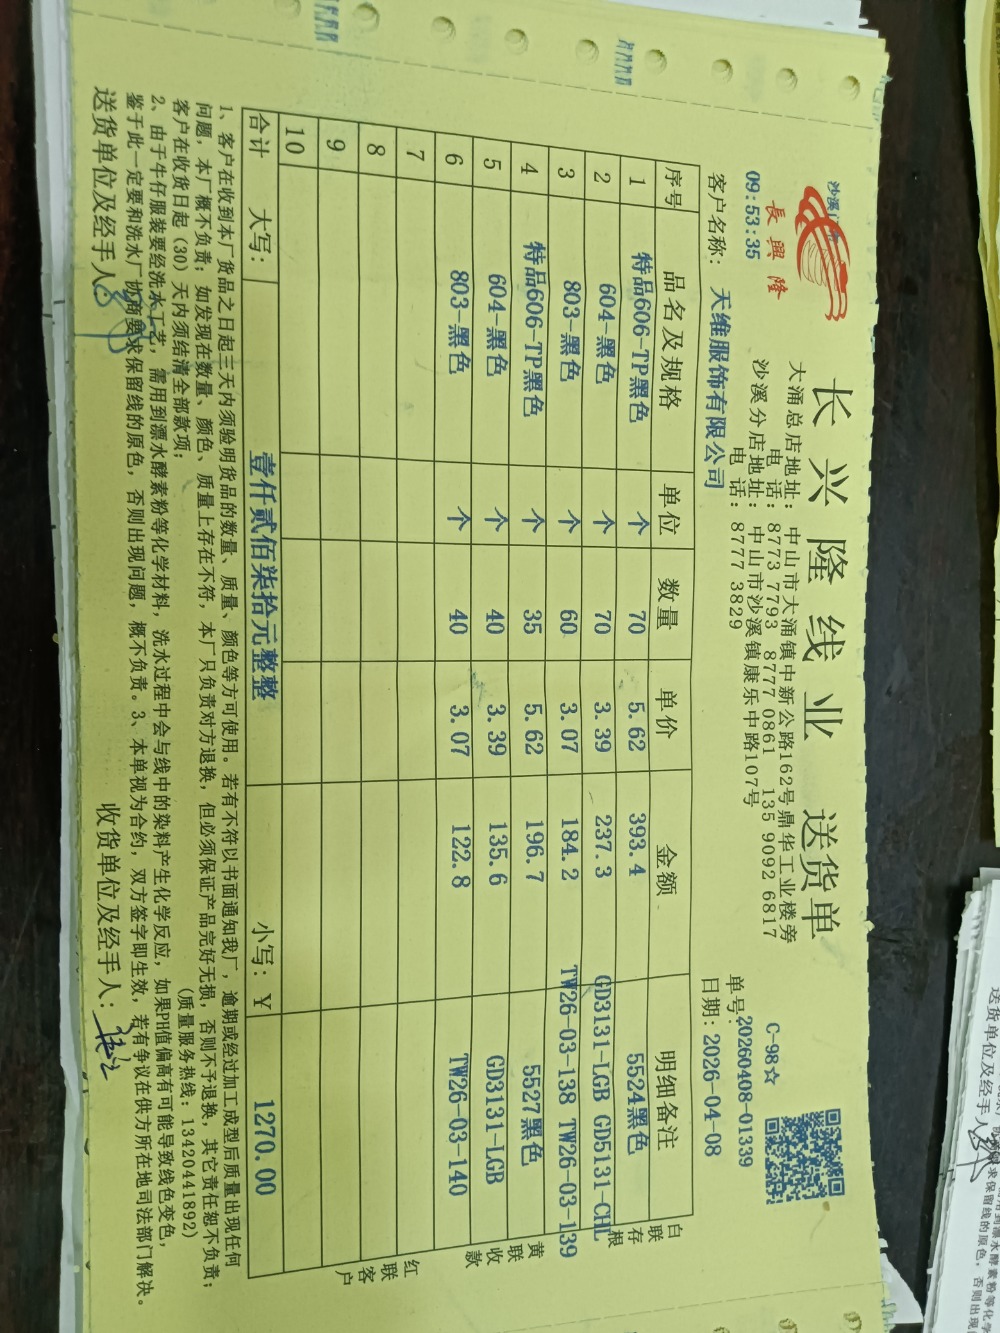 长兴隆线业 送货单
長興隆
大涌总店地址: 中山市大涌镇中新公路162号鼎华工业楼旁
电 话: 8773 7793 8777 0861 135 9092 6817
沙溪分店地址: 中山市沙溪镇康乐中路107号
电 话: 8777 3829
C-98☆
09:53:35
单号: 20260408-01339
客户名称: 天维服饰有限公司
日期: 2026-04-08
序号 品名及规格 单位 数量 单价 金额 明细备注
1 特品606-TP黑色 个 70 5.62 393.4 5524黑色
2 604-黑色 个 70 3.39 237.3 GD3131-LGB GD5131-CHL
3 803-黑色 个 60 3.07 184.2 TW26-03-138 TW26-03-139
4 特品606-TP黑色 个 35 5.62 196.7 5527黑色
5 604-黑色 个 40 3.39 135.6 GD3131-LGB
6 803-黑色 个 40 3.07 122.8 TW26-03-140
7
8
9
10
合计 大写: 壹仟贰佰柒拾元整整 小写: Y 1270.00
白联存根
黄联收款
红联客户
1、客户在收到本厂货品之日起三天内须验明货品的数量、质量、颜色等方可使用。若有不符以书面通知我厂, 逾期或经过加工成型后质量出现任何
问题, 本厂概不负责; 如发现在数量、颜色、质量上存在不符, 本厂只负责对方退换, 但必须保证产品完好无损, 否则不予退换, 其它责任恕不负责;
客户在收货日起 (30) 天内须结清全部款项; (质量服务热线: 13420441892)
2、由于牛仔服装要经洗水工艺, 需用到漂水酵素粉等化学材料, 洗水过程中会与线中的染料产生化学反应, 如果PH值偏高有可能导致线色变色,
鉴于此一定要和洗水厂协商要求保留线的原色, 否则出现问题, 概不负责。3、本单视为合约, 双方签字即生效, 若有争议在供方所在地司法部门解决。
送货单位及经手人: 收货单位及经手人: